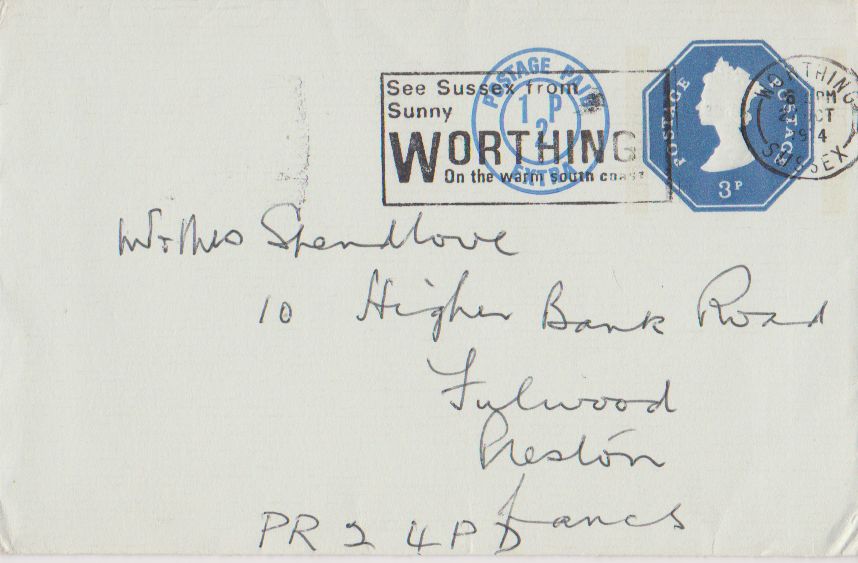 See Sussex from
Sunny
WORTHING
On the warm south coast
POSTAGE PAID
1 P
2
EXTRA
POSTAGE POSTAGE
3P
WORTHING
PM
OCT
SUSSEX
Mr & Mrs Spendlove
10 Higher Bank Road
Fulwood
Preston
Lancs
PR2 4PD